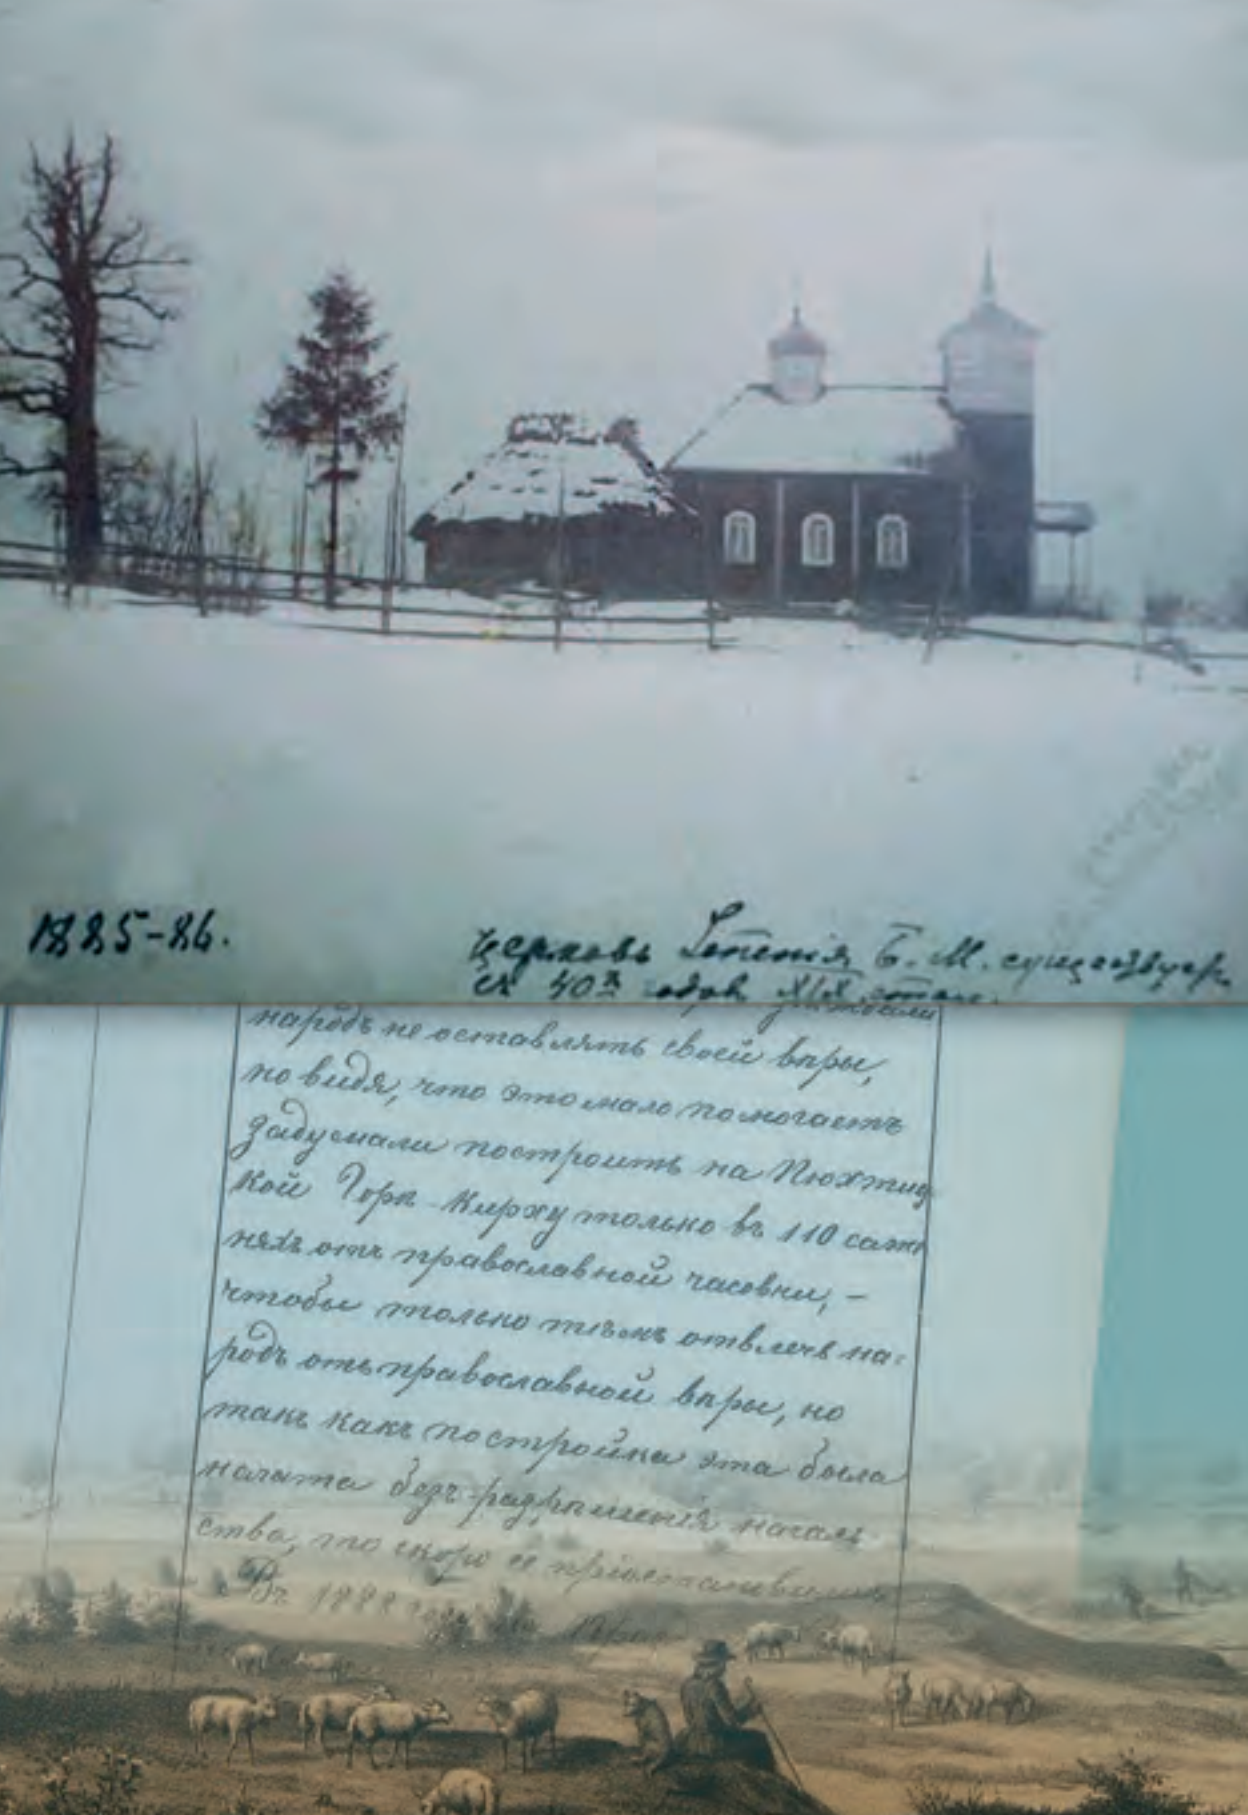 1885-86.
Церковь Успенія Б. М. существует
с 40х годов XIX стол.
народъ не оставлять своей вѣры,
но видя, что это мало помогаетъ
задумали построить на Пюхтиц
кой Горѣ Кирху только въ 110 саже
няхъ отъ православной часовни, –
чтобы только тѣмъ отвлечь на=
родъ отъ православной вѣры, но
такъ какъ постройка эта была
начата безъ разрѣшенія началь
ства, то скоро ее пріостановили
Въ 1888 году